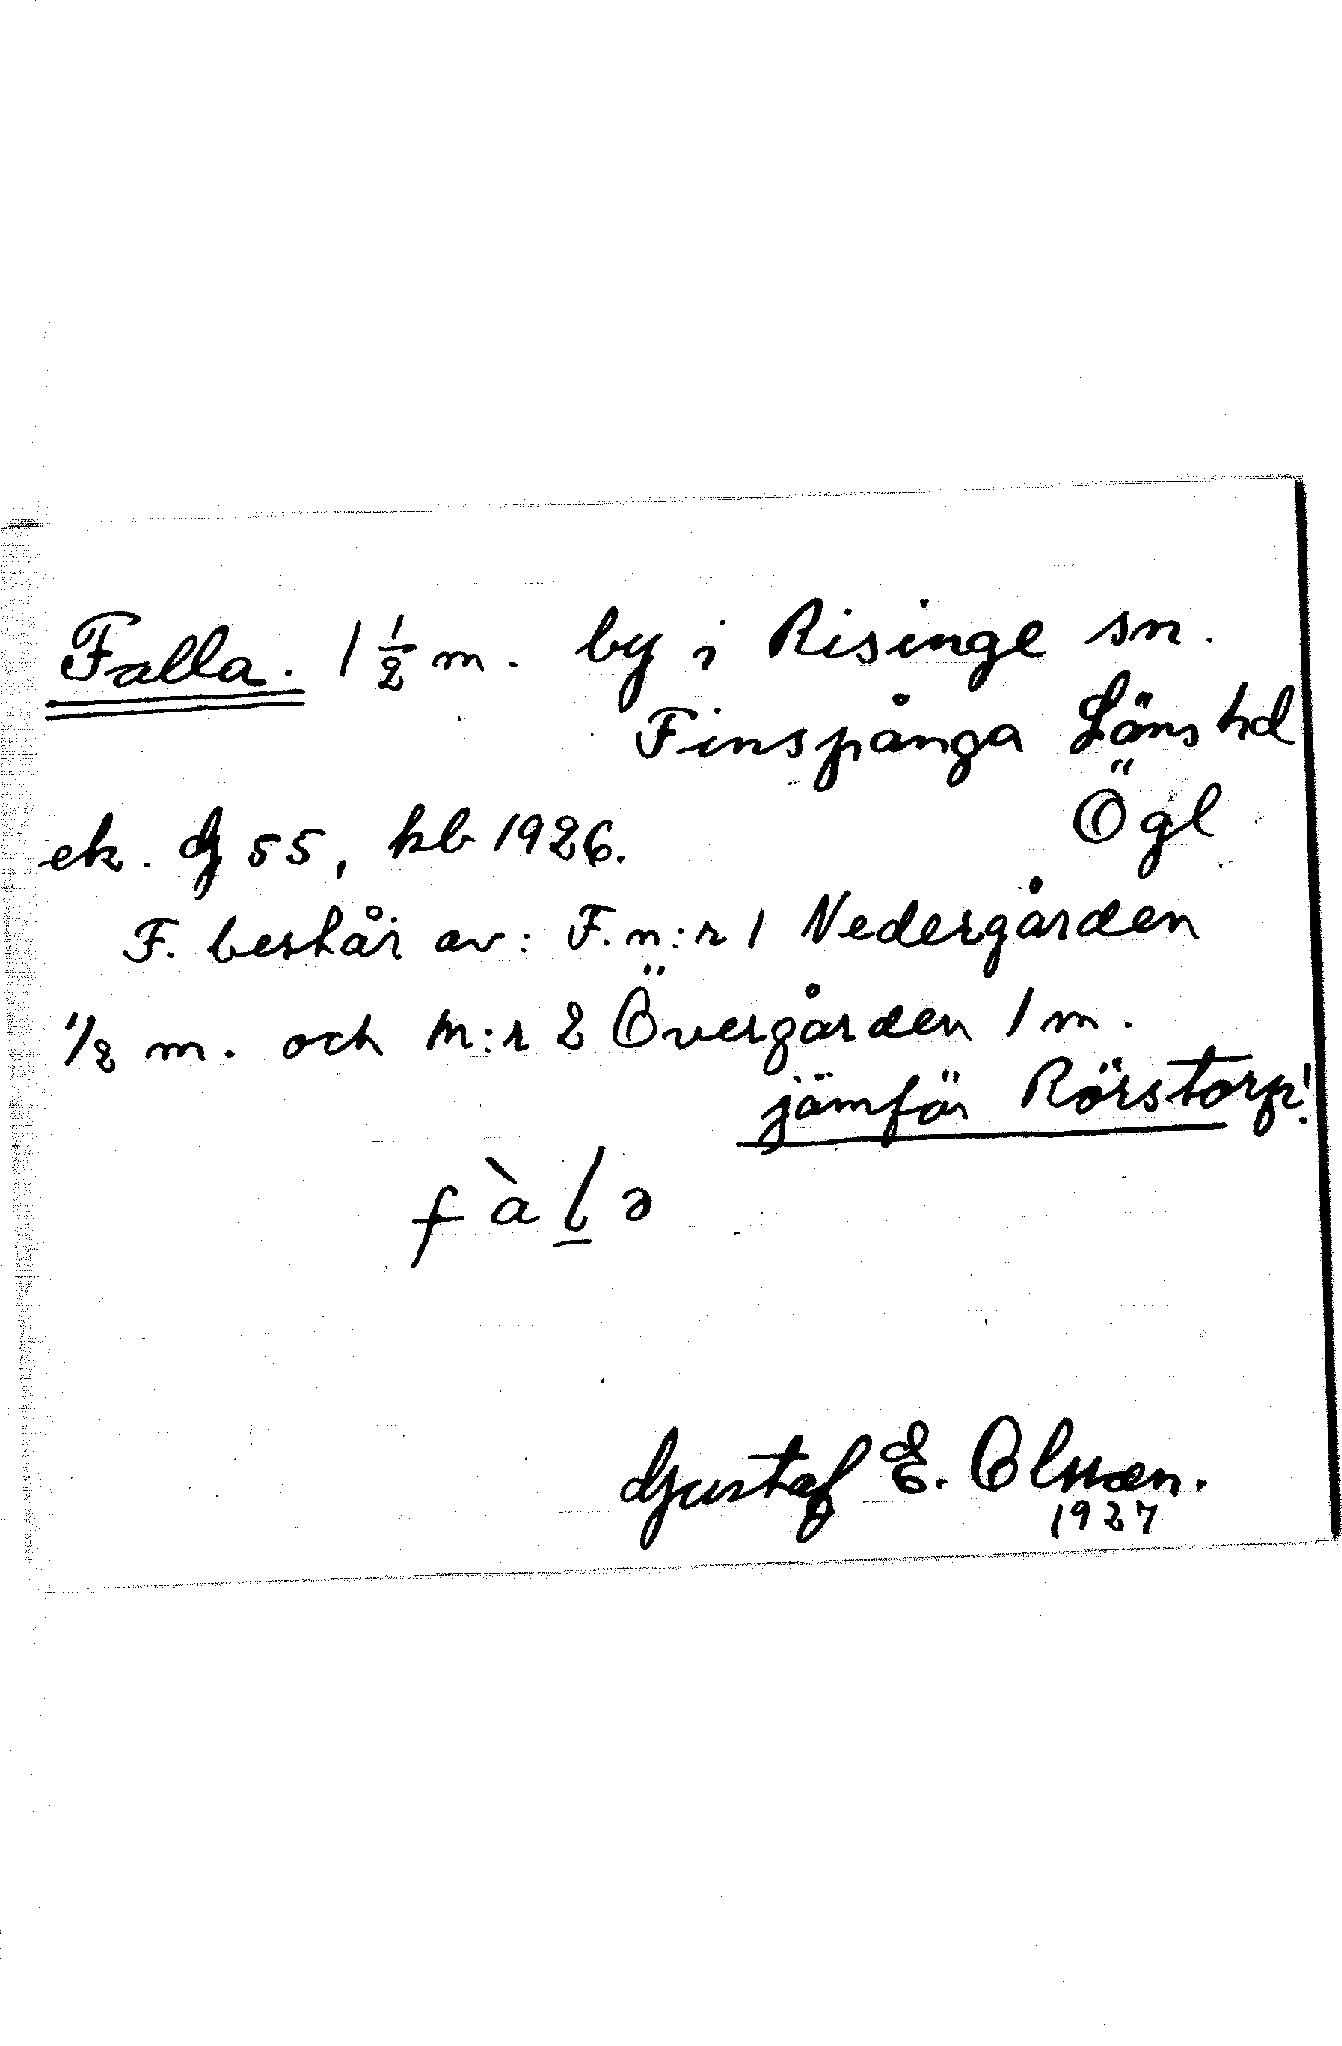 Falla. 1 1/2 m. by i Risinge sn.
Finspånga Läns hd
Ögl
ek. G 55, kb 1926.
F. består av: F. n:r 1 Nedergården
1/2 m. och n:r 2 Övergården 1 m.
jämför Rörstorp!
f à l ə
Gustaf E. Olsson.
1927